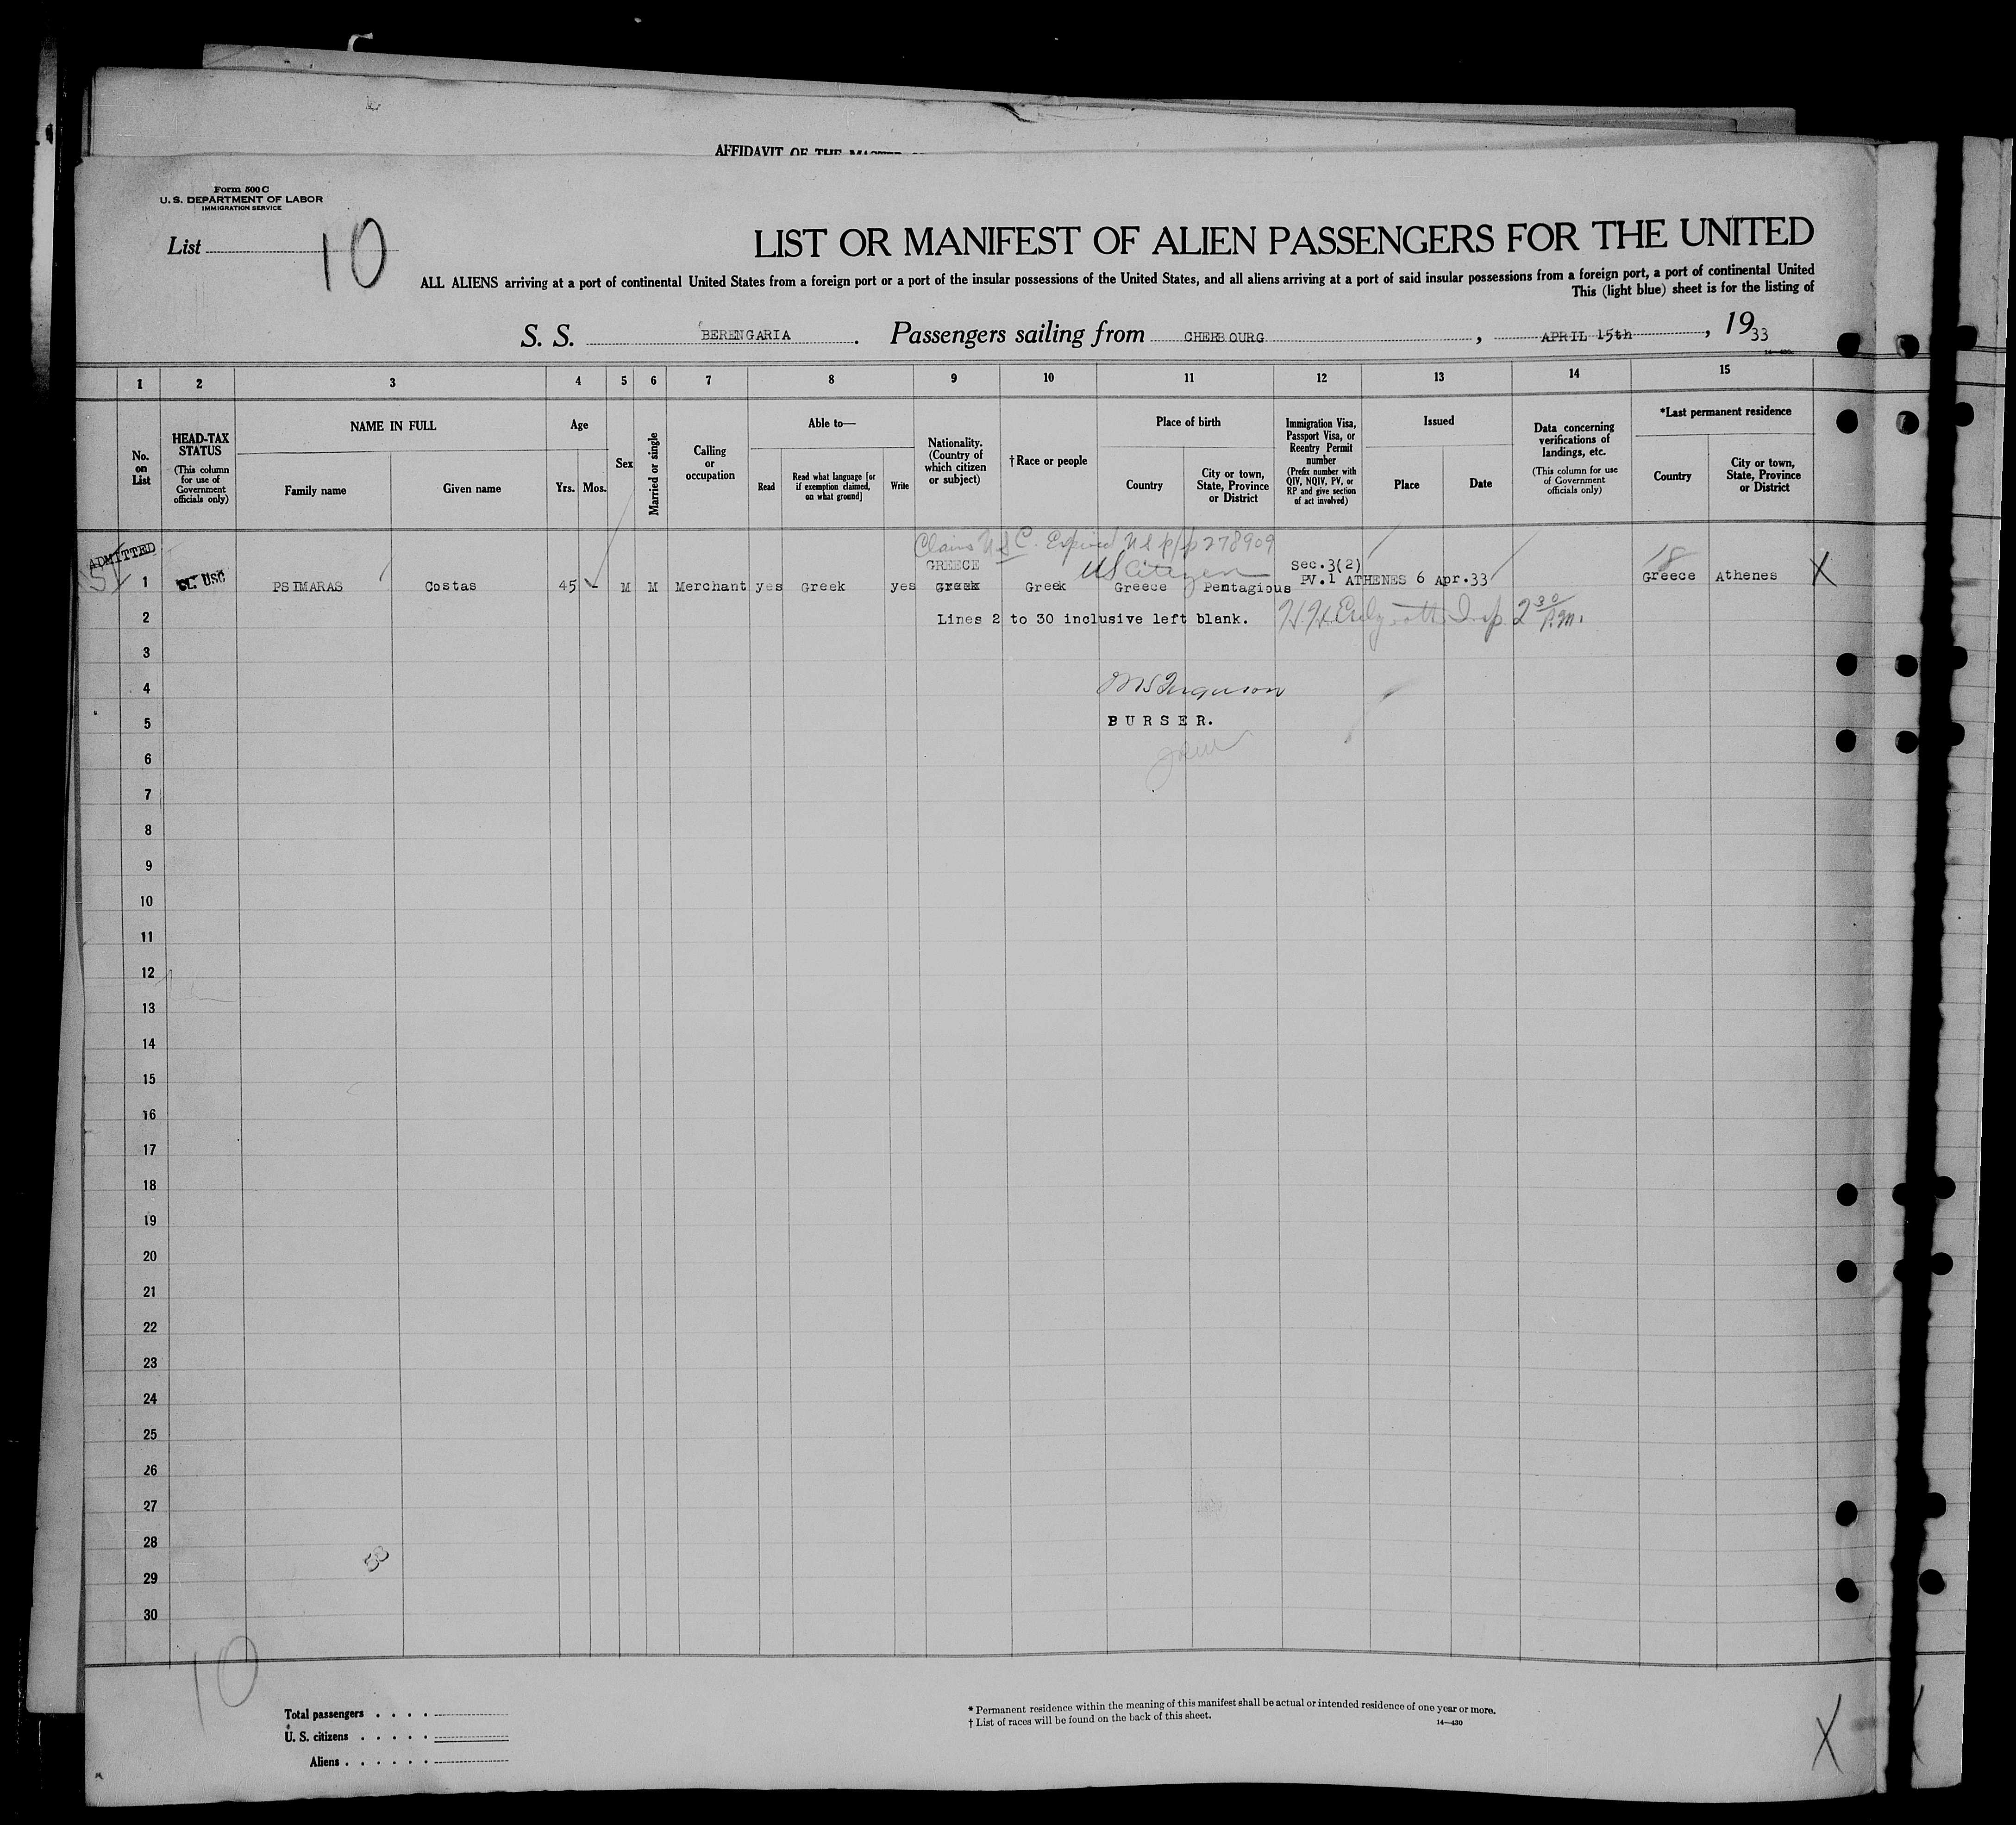 AFFIDAVIT OF THE MASTER
Form 500 C
U. S. DEPARTMENT OF LABOR
IMMIGRATION SERVICE
List 10
LIST OR MANIFEST OF ALIEN PASSENGERS FOR THE UNITED
ALL ALIENS arriving at a port of continental United States from a foreign port or a port of the insular possessions of the United States, and all aliens arriving at a port of said insular possessions from a foreign port, a port of continental United
This (light blue) sheet is for the listing of
S. S. BERENGARIA. Passengers sailing from CHERBOURG, APRIL 15th, 1933
14—430
1 2 3 4 5 6 7 8 9 10 11 12 13 14 15
No. on List
HEAD-TAX STATUS
(This column for use of Government officials only)
NAME IN FULL
Family name
Given name
Age
Yrs. Mos.
Sex
Married or single
Calling or occupation
Able to—
Read
Read what language [or if exemption claimed, on what ground]
Write
Nationality. (Country of which citizen or subject)
† Race or people
Place of birth
Country
City or town, State, Province or District
Immigration Visa, Passport Visa, or Reentry Permit number
(Prefix number with QIV, NQIV, PV, or RP and give section of act involved)
Issued
Place
Date
Data concerning verifications of landings, etc.
(This column for use of Government officials only)
*Last permanent residence
Country
City or town, State, Province or District
Claims USC. Expired US p/p 278909
ADMITTED
GREECE US Citizen Sec.3(2) 18
1 USC PSIMARAS Costas 45 M M Merchant yes Greek yes Greek Greek Greece Pentagious PV.1 ATHENES 6 Apr.33 Greece Athenes X
2 Lines 2 to 30 inclusive left blank. Insp. 2 30 P.M.
3
4 Ferguson
5 PURSER.
6
7
8
9
10
11
12
13
14
15
16
17
18
19
20
21
22
23
24
25
26
27
28
29
30
10
Total passengers . . . .
U. S. citizens . . . . .
Aliens . . . . . .
* Permanent residence within the meaning of this manifest shall be actual or intended residence of one year or more.
† List of races will be found on the back of this sheet.
14—430
X